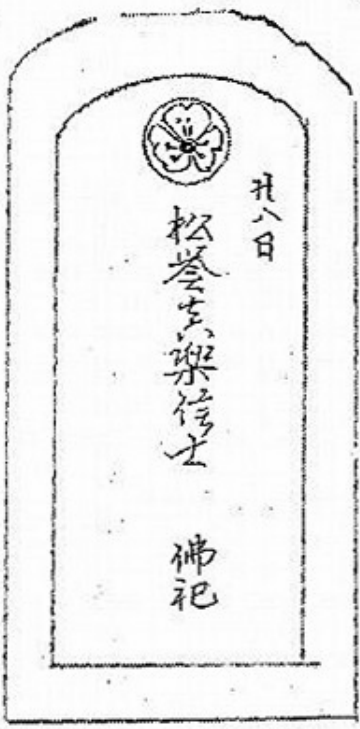 廿八日
松誉真楽信士 佛祀